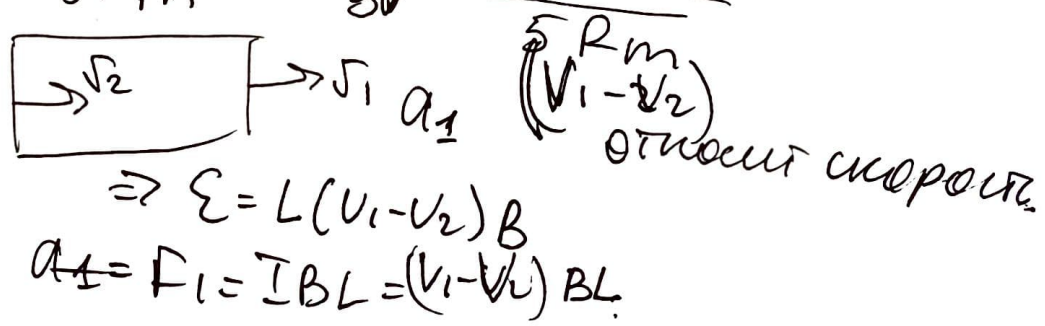 5 Rm
→ V₂ → V₁ a₁ (V₁ - V₂)
относит скорость.
=> Ɛ = L(V₁-V₂)B
a₁ = F₁ = IBL = (V₁-V₂) BL.